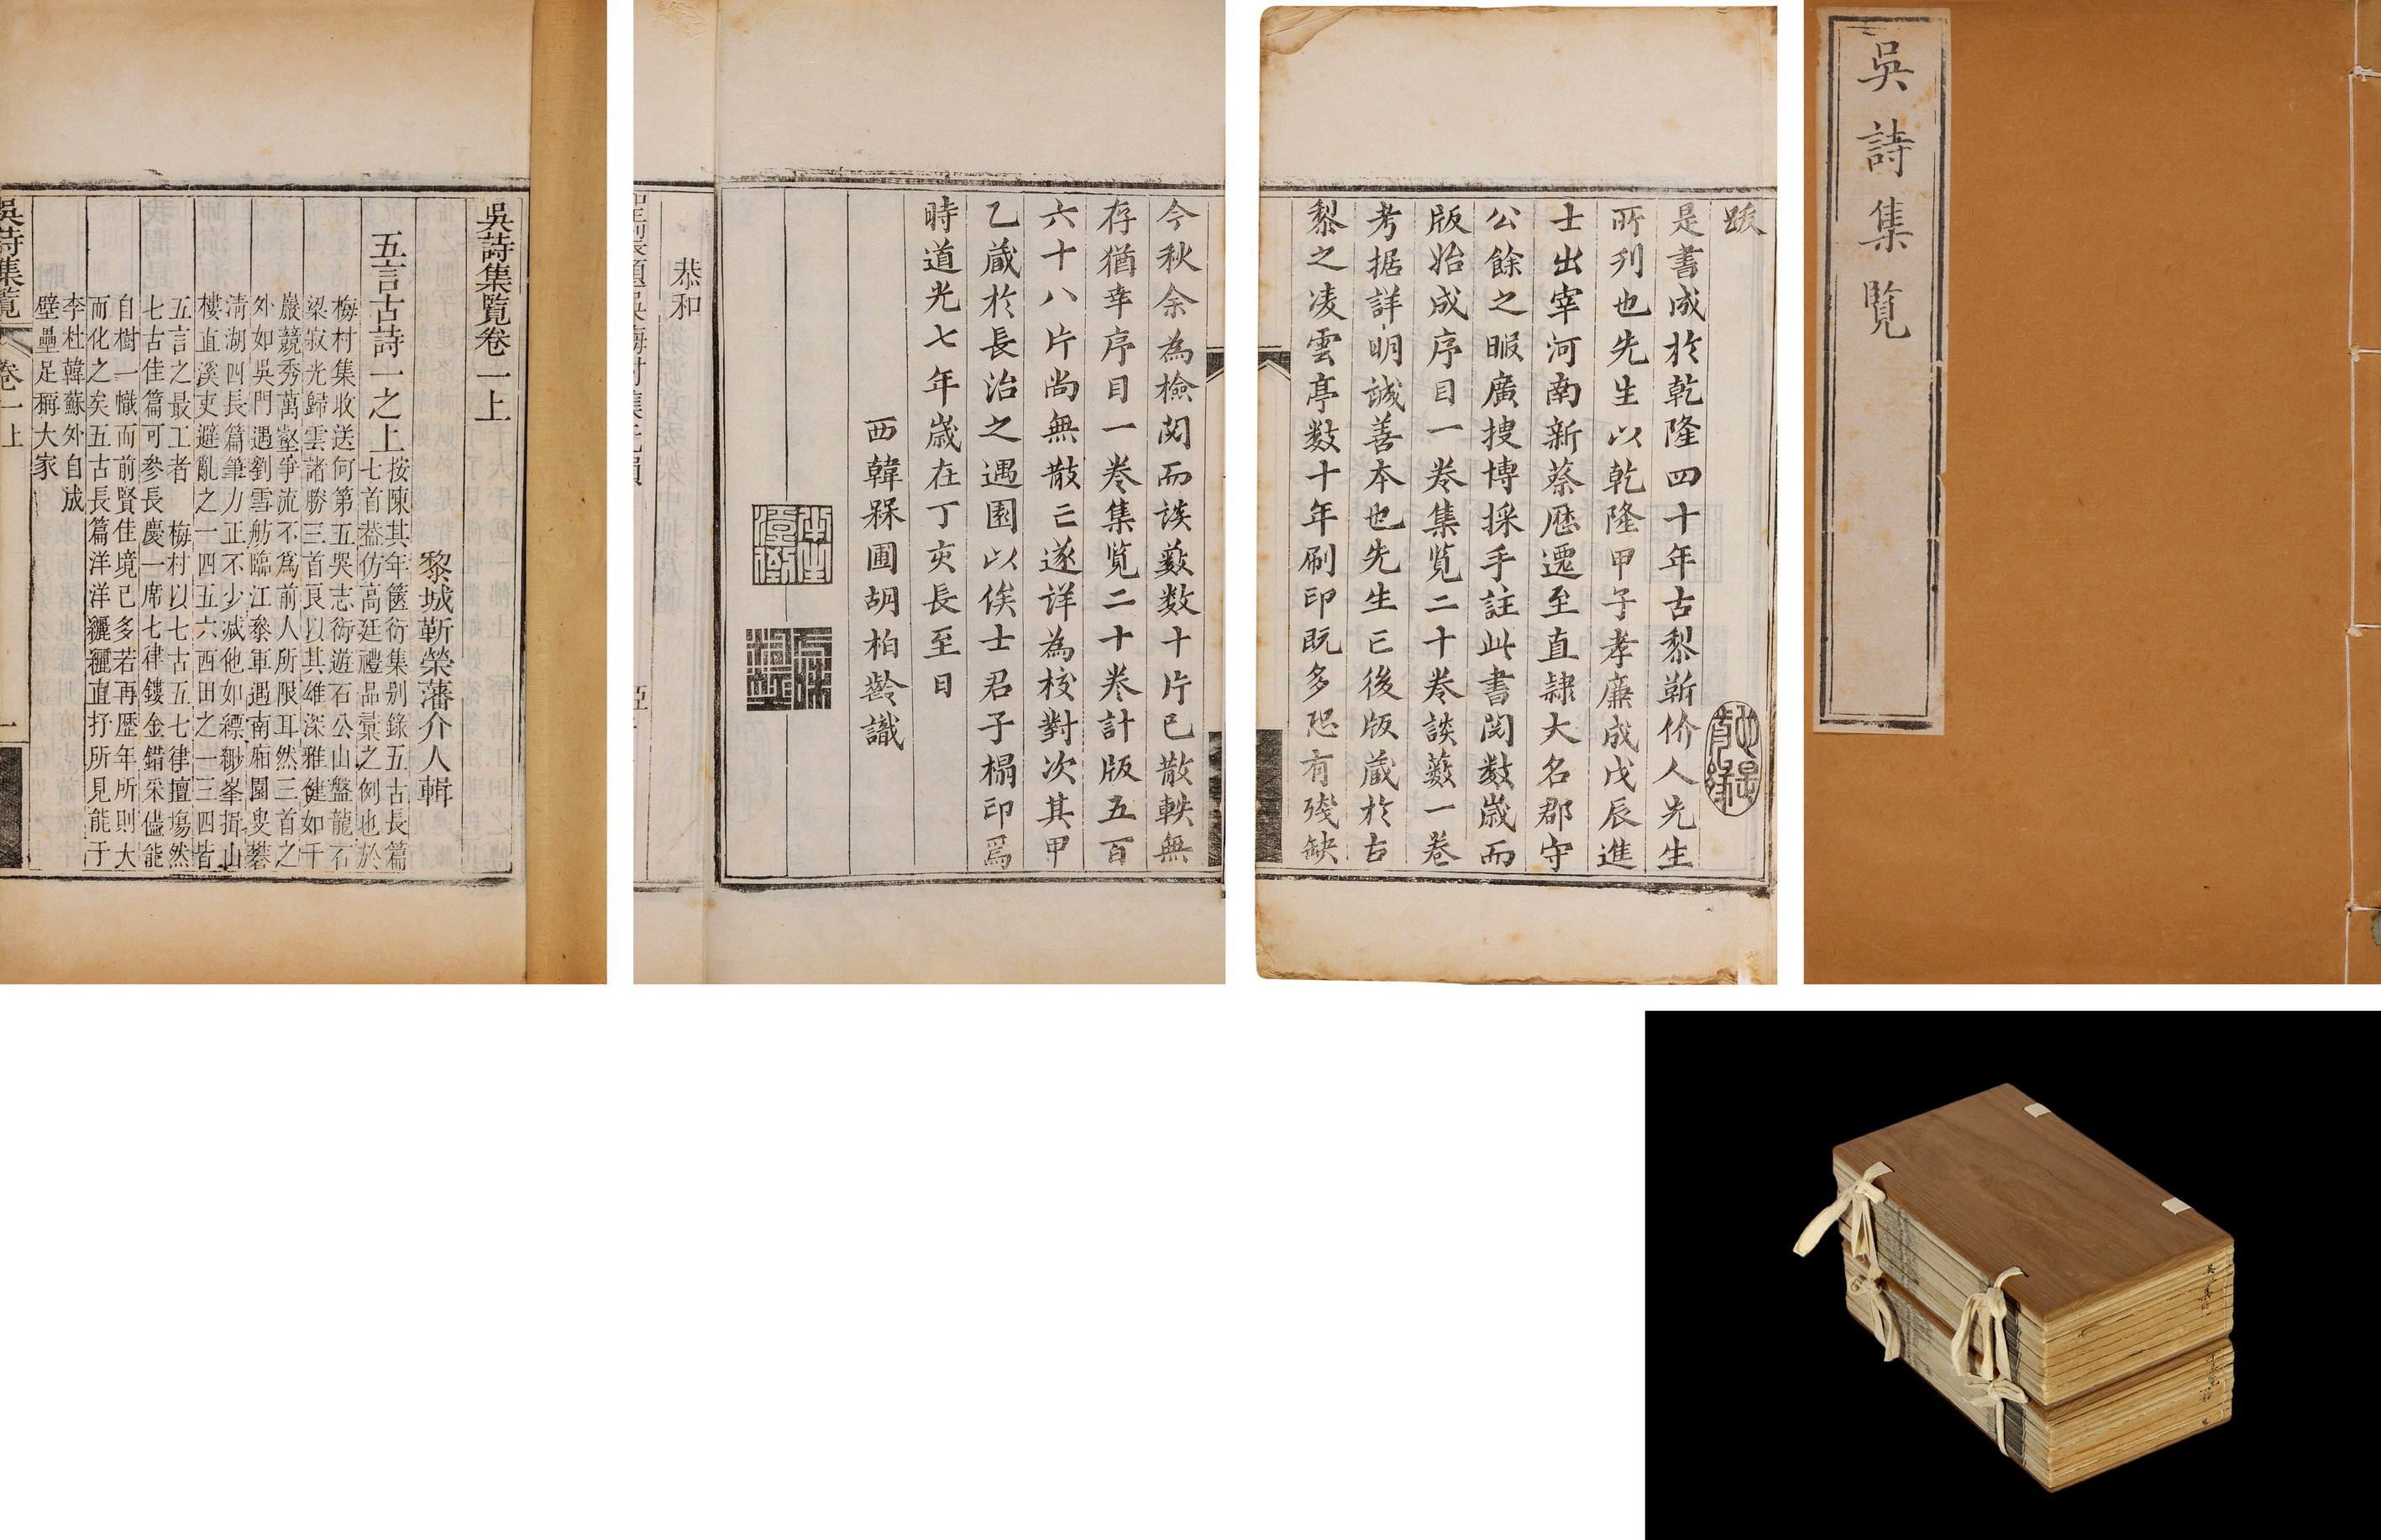 吳詩集覧
跋
是書成於乾隆四十年古黎靳价人先生
所列也先生以乾隆甲子孝廉成戊辰進
士出宰河南新蔡歷遷至直隷大名郡守
公餘之暇廣搜博採手註此書閱數歲而
版始成序目一卷集覧二十卷談藪一卷
考据詳明誠善本也先生已後版藏於古
黎之凌雲亭数十年刷印既多恐有殘缺
今秋余為檢閱而談藪数十片已散軼無
存猶幸序目一卷集覧二十卷計版五百
六十八片尚無散亡遂详為校對次其甲
乙藏於長治之遇園以俟士君子榻印焉
時道光七年歲在丁亥長至日
西韓槑圃胡柏齡識
恭和
吳詩集覧卷一上
黎城靳榮藩介人輯
五言古詩一之上
按陳其年篋衍集别錄五古長篇
七首葢仿高廷禮品彙之例也於
梅村集收送何第五哭志衍遊石公山盤龍石
梁寂光歸雲諸勝三首良以其雄深雅健如千
巖競秀萬壑爭流不爲前人所限耳然三首之
外如吳門遇劉雪舫臨江參軍遇南廂園叟礬
淸湖四長篇筆力正不少减他如縹緲峯揖山
樓直溪吏避亂之一四五六西田之一三四皆
五言之最工者 梅村以七古五七律擅塲然
七古佳篇可參長慶一席七律鏤金錯采儘能
自樹一幟而前賢佳境已多若再歷年所則大
而化之矣五古長篇洋洋灑灑直抒所見能于
李杜韓蘇外自成
壁壘足稱大家
吳詩集覧
卷一上
一